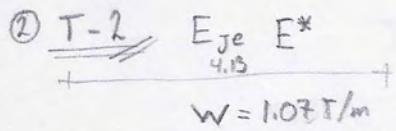 ② T-2 Eje E*
4.13
W = 1.07 T/m